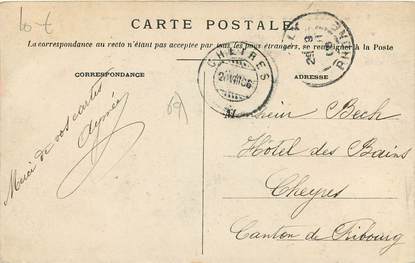 10 €
CARTE POSTALE
La correspondance au recto n'étant pas acceptée par tous les pays étrangers, se renseigner à la Poste
CORRESPONDANCE
ADRESSE
CHEYRES
Merci de vos cartes
Aymée
Monsieur Bech
Hôtel des Bains
Cheyres
Canton de Fribourg